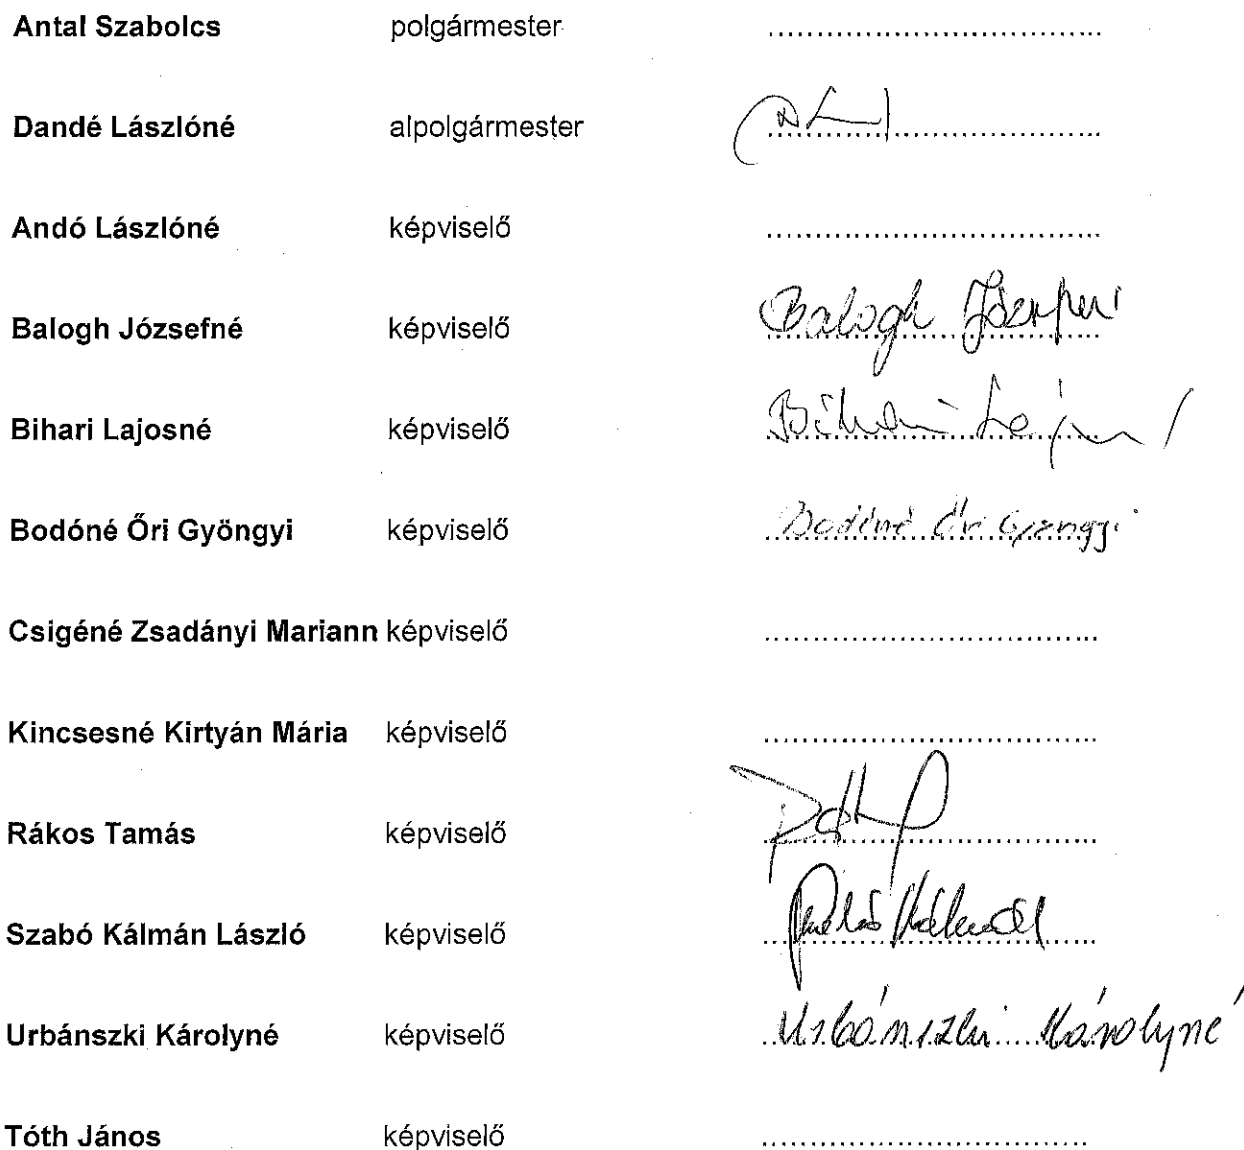 Antal Szabolcs polgármester ..................................
Dandé Lászlóné alpolgármester ..................................
Andó Lászlóné képviselő ..................................
Balogh Józsefné képviselő Balogh Józsefné
Bihari Lajosné képviselő Bihari
Bodóné Őri Gyöngyi képviselő Bodóné Őri Gyöngyi
Csigéné Zsadányi Mariann képviselő ..................................
Kincsesné Kirtyán Mária képviselő ..................................
Rákos Tamás képviselő
Szabó Kálmán László képviselő
Urbánszki Károlyné képviselő Urbánszki Károlyné
Tóth János képviselő ..................................